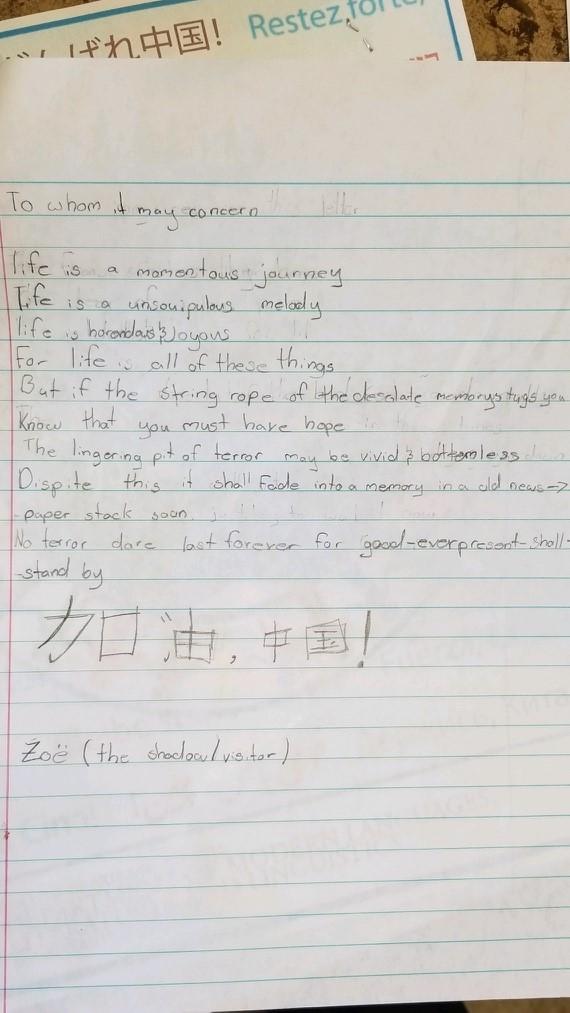 んばれ中国! Restez forte,
To whom it may concern
life is a momentous journey
Life is a unsouipulous melody
life is horendais & Joyous
For life is all of these things
But if the string rope of the desolate memorys tugs you
Know that you must have hope
The lingering pit of terror may be vivid & bottomless
Dispite this it shall fade into a memory in a old news->
-paper stack soon
No terror dare last forever for good-everpresent-shall-
-stand by
加油, 中国!
Zoë (the shadow/visitor)